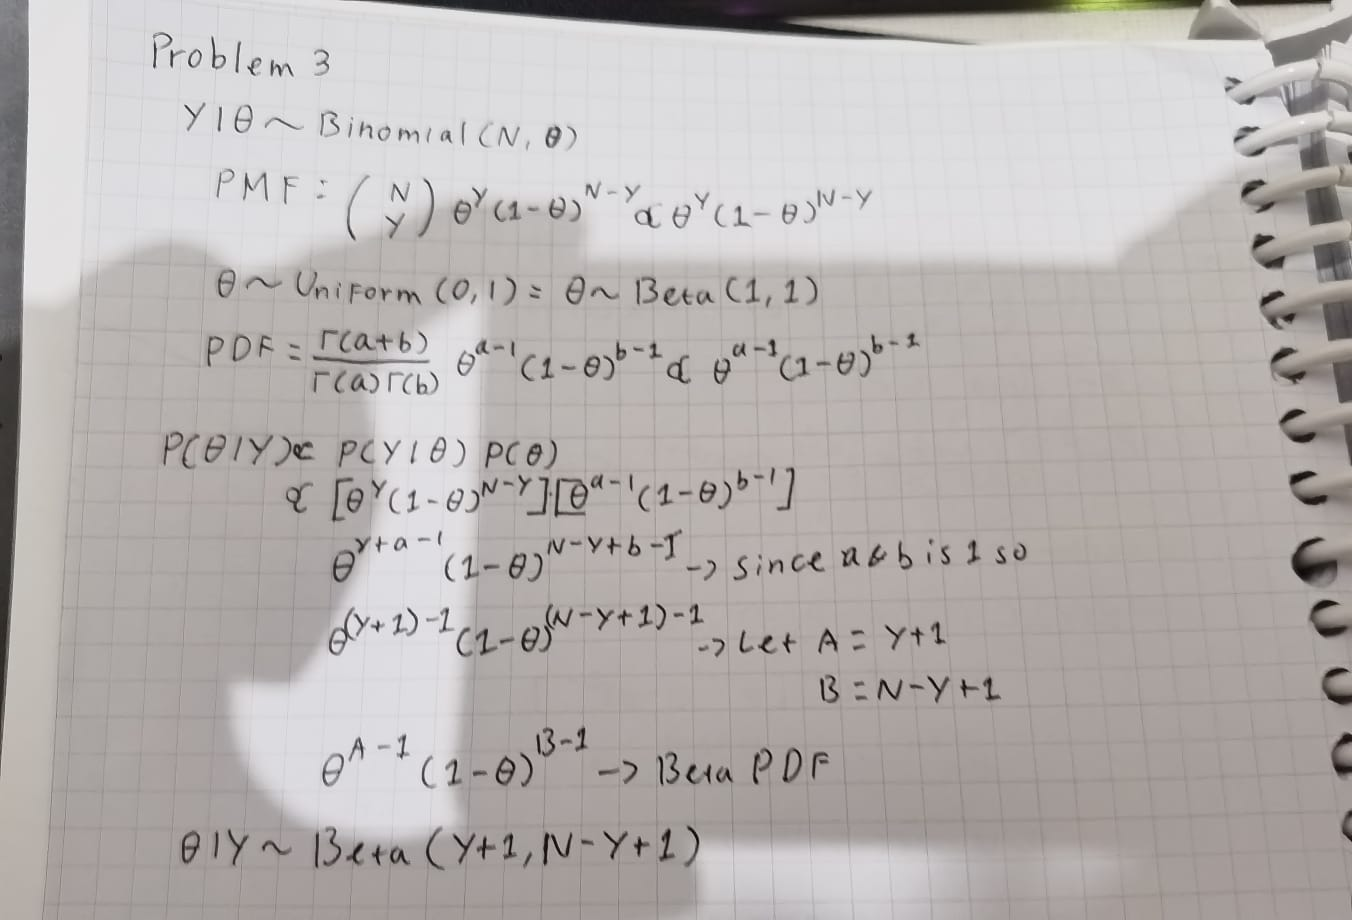 Problem 3
Y|θ ~ Binomial(N, θ)
PMF: (N Y) θ^Y (1-θ)^N-Y ∝ θ^Y (1-θ)^N-Y
θ ~ Uniform (0,1) = θ ~ Beta (1,1)
PDF = Γ(a+b) / Γ(a)Γ(b) θ^a-1 (1-θ)^b-1 ∝ θ^a-1 (1-θ)^b-1
P(θ|Y) ∝ P(Y|θ) P(θ)
∝ [θ^Y (1-θ)^N-Y]·[θ^a-1 (1-θ)^b-1]
θ^Y+a-1 (1-θ)^N-Y+b-1 -> since a & b is 1 so
θ^(Y+1)-1 (1-θ)^(N-Y+1)-1 -> Let A = Y+1
B = N-Y+1
θ^A-1 (1-θ)^B-1 -> Beta PDF
θ|Y ~ Beta (Y+1, N-Y+1)